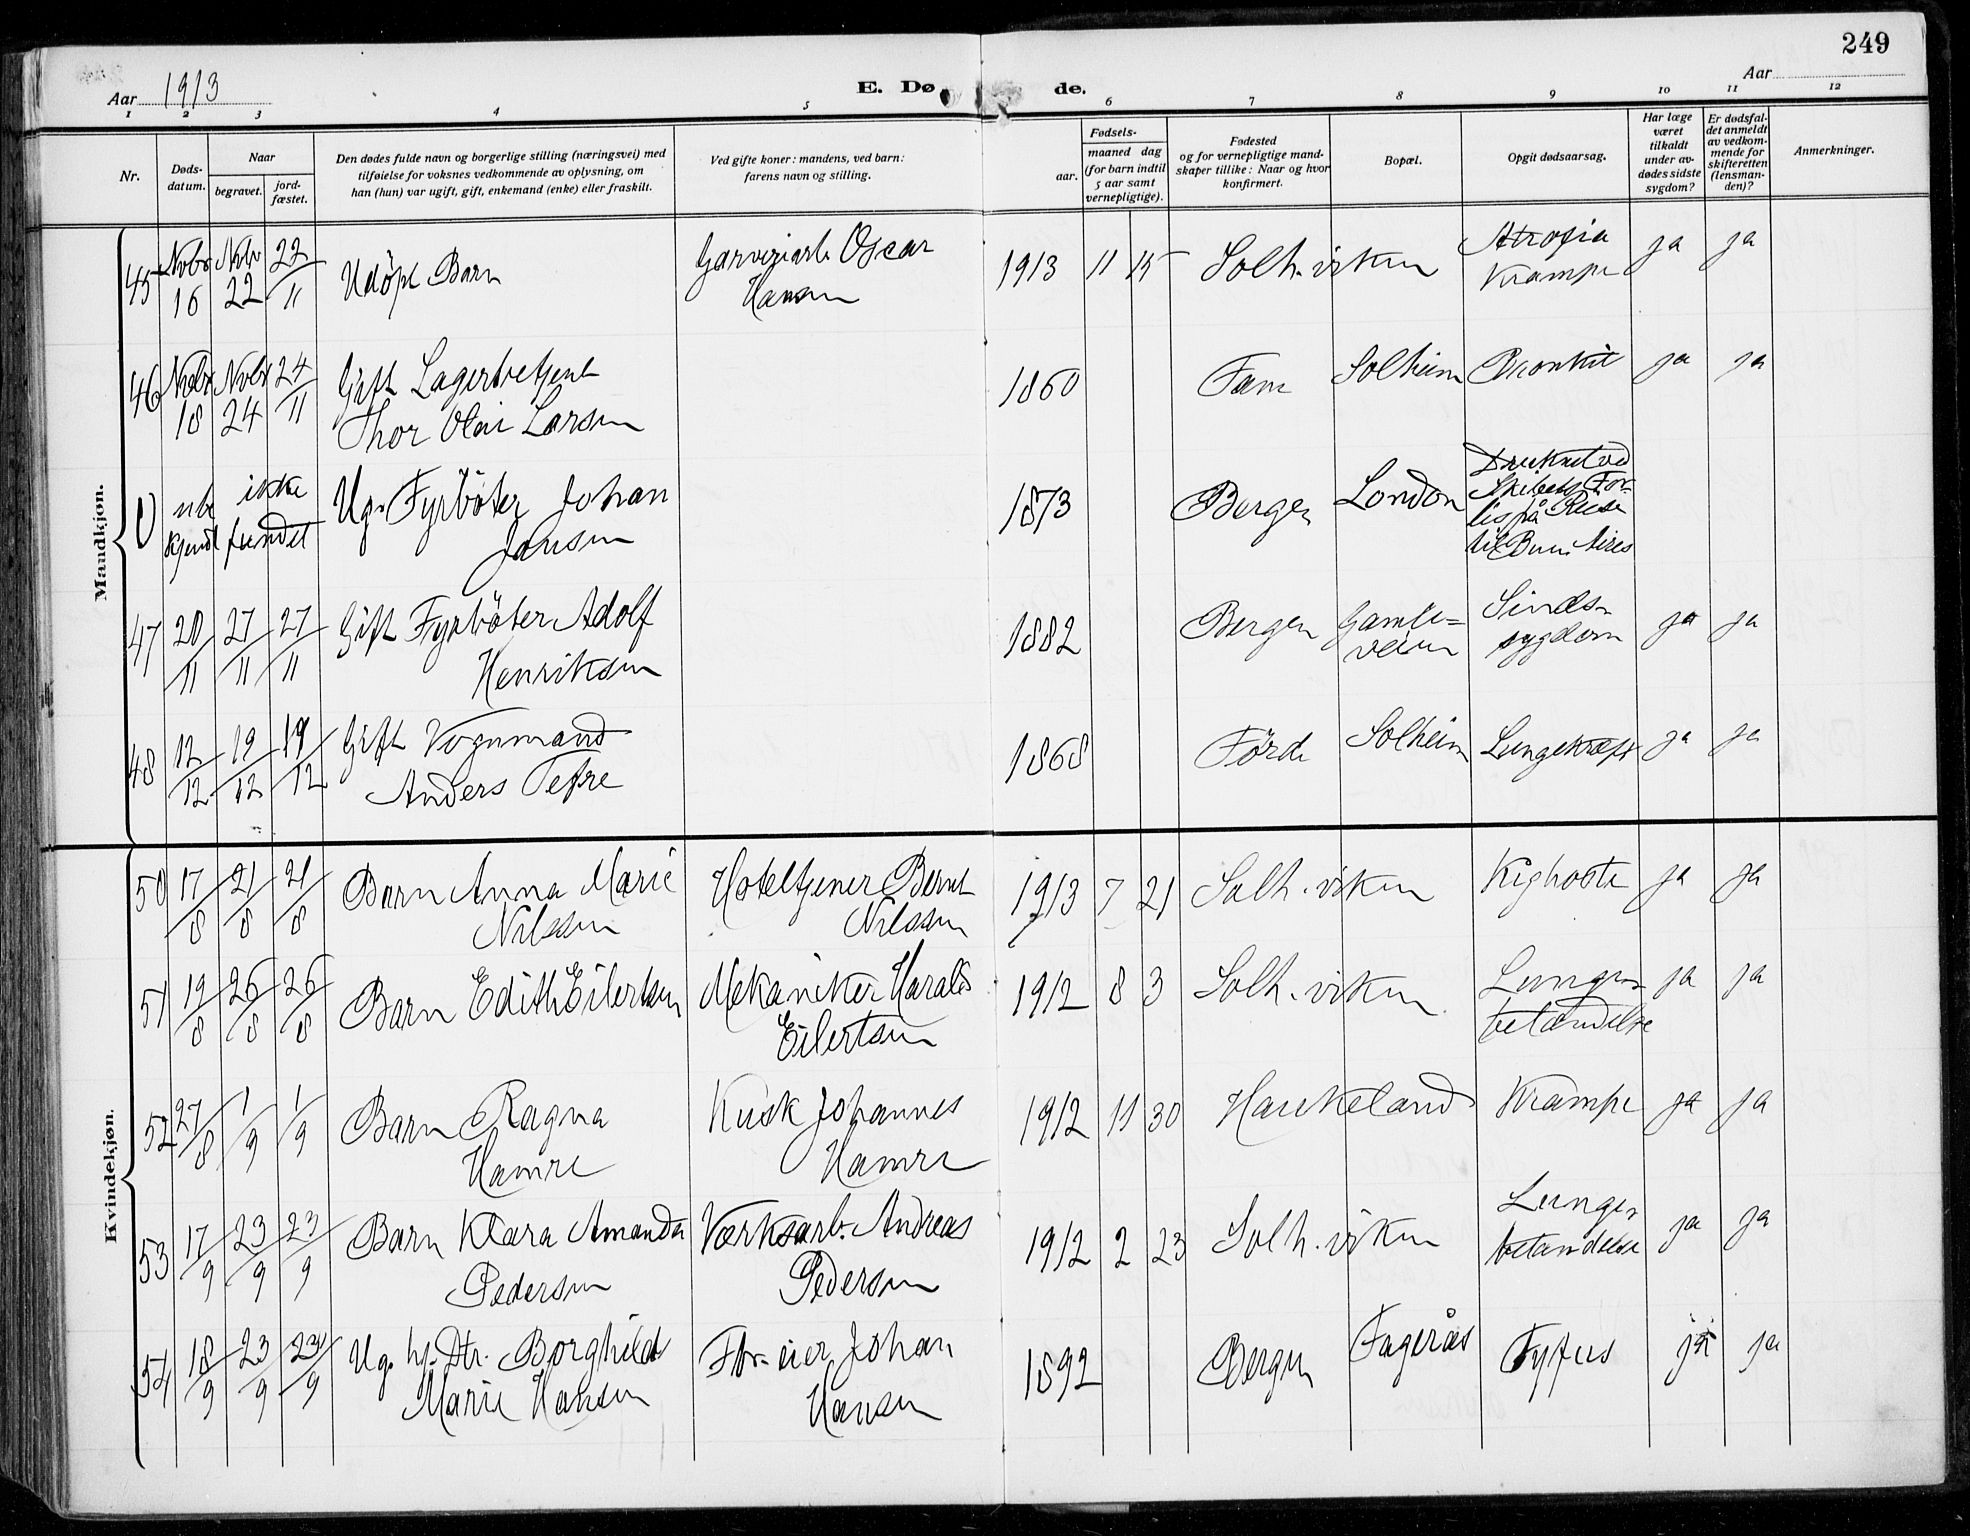 249
Aar 1913
E. Dø de.
Aar
1 2 3 4 5 6 7 8 9 10 11 12
Nr.
Døds-
datum.
Naar
begravet.
jord-
fæstet.
Den dødes fulde navn og borgerlige stilling (næringsvei) med
tilføielse for voksnes vedkommende av oplysning, om
han (hun) var ugift, gift, enkemand (enke) eller fraskilt.
Ved gifte koner: mandens, ved barn:
farens navn og stilling.
Fødsels-
aar.
maaned dag
(for barn indtil
5 aar samt
vernepligtige).
Fødested
og for vernepligtige mand-
skaper tillike: Naar og hvor
konfirmert.
Bopæl.
Opgit dødsaarsag.
Har læge
været
tilkaldt
under av-
dødes sidste
sygdom?
Er dødsfal-
det anmeldt
av vedkom-
mende for
skifteretten
(lensman-
den)?
Anmerkninger.
Mandkjøn.
45 Novbr 16 Novbr 22 22/11 Udöpt Barn Garveriarb. Oscar
Hansen 1913 11 15 Solh.viken Atrofia
Krampe ja ja
46 Novbr 18 Novbr 24 24/11 Gift Lagerbetjent
Thor Olai Larsen 1860 Fane Solheim Bronkit ja ja
U ube
kjendt ikke
fundet Ug. Fyrböter Johan
Jansen 1873 Bergen London Druknet ved
Skibets For-
lis på Reise
til Buen. Aires
47 20/11 27/11 27/11 Gift Fyrböter Adolf
Henriksen 1882 Bergen Gamle=
veien Sinds-
sygdom ja ja
48 12/12 19/12 19/12 Gift Vognmand
Anders Tefre 1868 Förde Solheim Lungekræft ja ja
Kvindekjøn.
50 17/8 21/8 21/8 Barn Anna Marie
Nilssen Hoteltjener Bernt
Nilssen 1913 7 21 Solh.viken Kighoste ja ja
51 19/8 26/8 26/8 Barn Edith Eilertsen Mekaniker Harald
Eilertsen 1912 8 3 Solh.viken Lunge-
betændelse ja ja
52 27/8 1/9 1/9 Barn Ragna
Hamre Kusk Johannes
Hamre 1912 11 30 Haukeland Krampe ja ja
53 17/9 23/9 23/9 Barn Klara Amanda
Pedersen Værksarb. Andreas
Pedersen 1912 2 23 Solh.viken Lunge-
betændelse ja ja
54 18/9 23/9 23/9 Ug. hj. Dtr. Borghild
Marie Hansen Fbr-eier Johan
Hansen 1892 Bergen Fagerås Tyfus ja ja